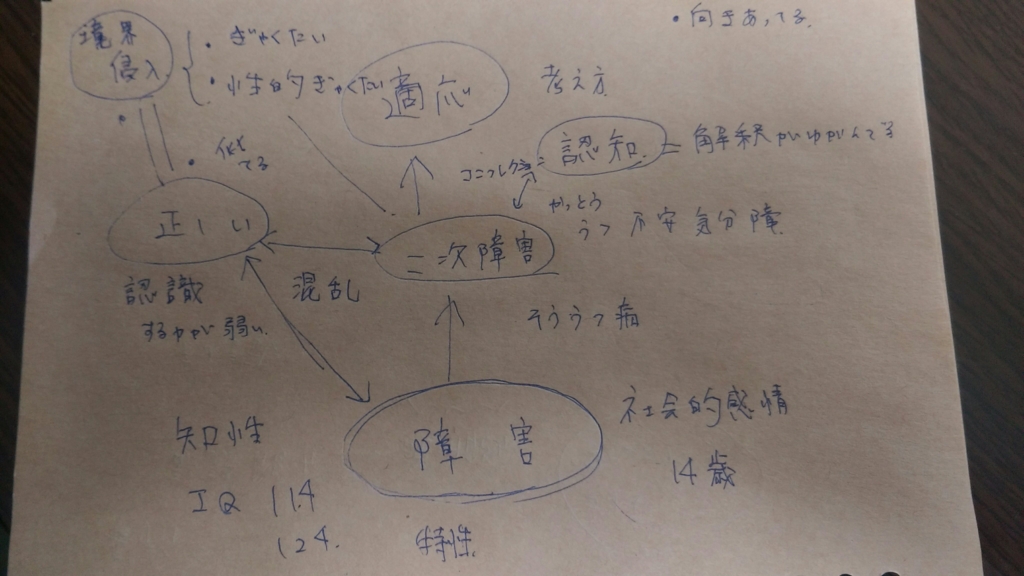 ・向きあってる.
境界
侵入
・ぎゃくたい
・性的ぎゃくたい
適応
考え方
・似
てる
コンプレックス=
認知
=解釈がゆがんでる
正しい
二次障害
かっとう
うつ 不安 気分障
認識
するカが弱い.
混乱
そううつ病
知性
IQ 114
124.
障害
特性
社会的感情
14歳